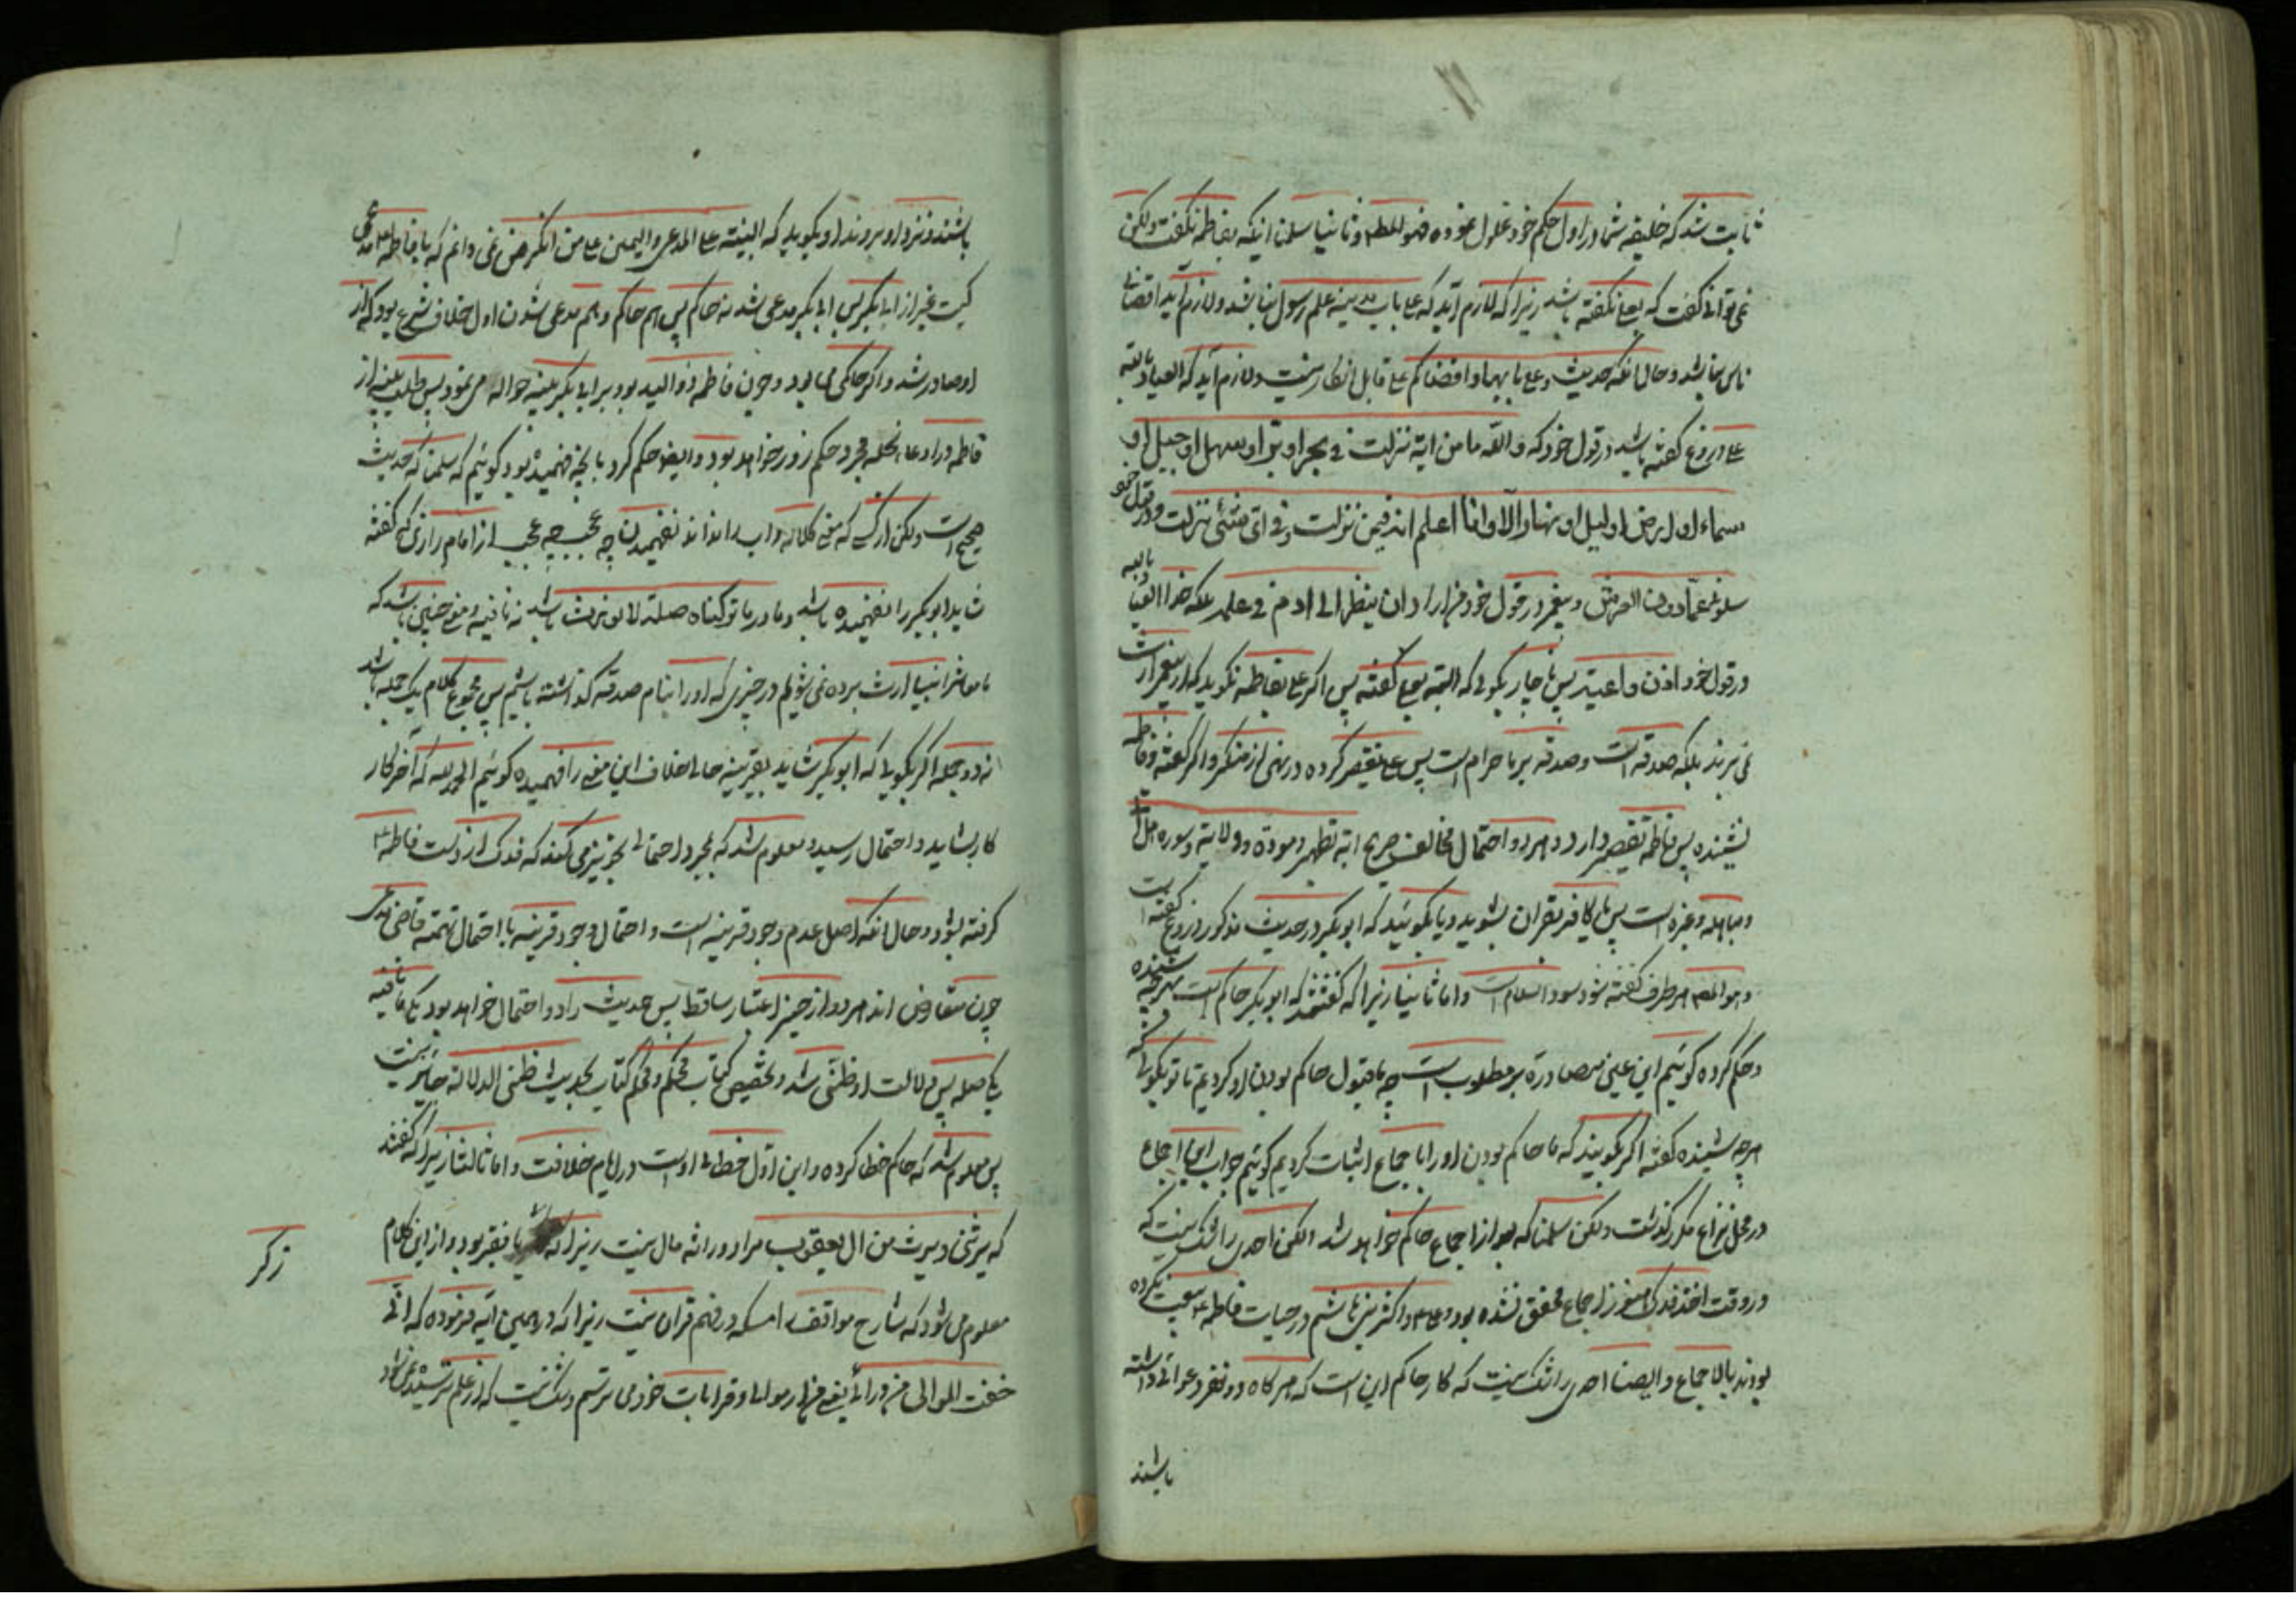 ثابت شد که خلیفه شما در اول حکم خود غلول نموده فهو المط و ثانیا سلمنا اینکه بفاطمه نکفت ولکن
نمی توانی کفت که بعلی نکفته باشد زیرا که لازم آید که علی باب مدینه علم رسول نباشد و لازم آید اقضای
ناس نباشد و حال آنکه حدیث و علی بابها و اقضاکم علی قابل انکار نیست و لازم آید که العیاذ بالله
علی دروغ کفته باشد در قول خود که والله ما من ایة نزلت فی بحر او بر او سهل او جبل او
سماء او ارض او لیل او نهار الا و انا اعلم انه فیمن نزلت و فی ای شئی نزلت و در قول خود
سلونی عما دون العرش و پیغمبر در قول خود من اراد ان ینظر الی ادم فی علمه بلکه خدا العیاذ بالله
در قول خود اذن واعیة پس ناچار بکوئی که البته بعلی کفته پس اکر علی بفاطمه نکوید که از پیغمبر ارث
نمی برند بلکه صدقه است و صدقه بر ما حرام است پس علی تقصیر کرده در نهی از منکر و اکر کفته و فاطمه
نشنیده پس فاطمه تقصیر دارد و هر دو احتمال مخالف صریح ایة تطهیر و مودة و ولایة و سوره هل اتی
و مباهله و غیره است پس یا کافر بقران بشوید و یا بکوئید که ابوبکر در حدیث مذکور دروغ کفته است
و هو المط هر طرف کفته شود سود اسلام است و اما ثانیا زیرا که کفتند که ابوبکر حاکم است بهر چه شنیده
و حکم کرده کوئیم این عین مصادرة بر مطلوب است چه ما قبول حاکم بودن او کردیم تا تو بکوئی که
هر چه شنیده کفته اکر بکویند که ما حاکم بودن او را با جماع اثبات کردیم کوئیم جواب این اجماع
در محل نزاع مکرر کذشت ولکن سلمنا که بعد از اجماع حاکم خواهد شد لکن احدی را شک نیست که
در وقت اخذ فدک هنوز اجماع محقق نشده بود و علی و اکثر بنی هاشم در حیات فاطمه بیعت نکرده
بودند بالاجماع و ایضا احدی را شک نیست که کار حاکم این است که هر کاه دو نفر دعوائی داشته
باشند
باشند و نزد او بروند او بکوید که البینة علی المدعی و الیمین علی من انکر من نمی دانم که با فاطمه مدعی
کیست غیر از ابابکر پس ابابکر مدعی شد نه حاکم پس هم حاکم و هم مدعی شدن اول خلاف شرع بود که از
او صادر شد و اکر حاکم می بود و چون فاطمه ذو الید بود بر ابابکر بینه حواله می نمود پس طلب بینه از
فاطمه در ادعاء نحله مجرد حکم زور خواهد بود و ایضا حکم کرد بانچه فهمیده بود کوئیم که سلمنا که حدیث
صحیح است ولکن از کسی که معنی کلاله و اب را نداند نفهمیدن چه عجب چه عجب از امام رازی که کفته
شاید ابوبکر را نفهمیده باشد و ما در ما ترکناه صله لا نورث باشد نه نافیه و معنی چنین باشد که
ما معاشر انبیا ارث برده نمی شویم در چیزی که او را بنام صدقه کذاشته باشیم پس مجموع کلام یک جمله باشد
نه دو جمله اکر بکوئی که ابوبکر شاید بقرینه حالا خلاف این معنی را فهمیده کوئیم الحمد لله که آخر کار
کار بشاید و احتمال رسید و معلوم شد که بمجرد احتمالی تجویز می کنند که فدک از دست فاطمه
کرفته بشود و حال آنکه اصل عدم وجود قرینه است و احتمال وجود قرینه با احتمال تهمة قاضی مدعی
چون متعارض اند هر دو از حیز اعتبار ساقط پس حدیث را دو احتمال خواهد بود یکی ما نافیه
یکی صله پس دلالت او ظنی شد و تخصیص کتاب محکم و محکم کتاب بحدیث ظنی الدلالة جایز نیست
پس معلوم شد که حاکم خطا کرده و این اول خطای اوست در ایام خلافت و اما ثالثا زیرا که کفتند
که یرثنی و یرث من ال یعقوب مراد وراثه مال نیست زیرا که زکریا فقیر بود و از این کلام
زکر
معلوم می شود که شارح مواقف را مسکه در فهم قران نیست زیرا که در همین ایه فرموده که انی
خفت الموالی من ورائی یعنی من از موالی و قرابات خود می ترسم و شک نیست که از علم ترسیده نمی شود